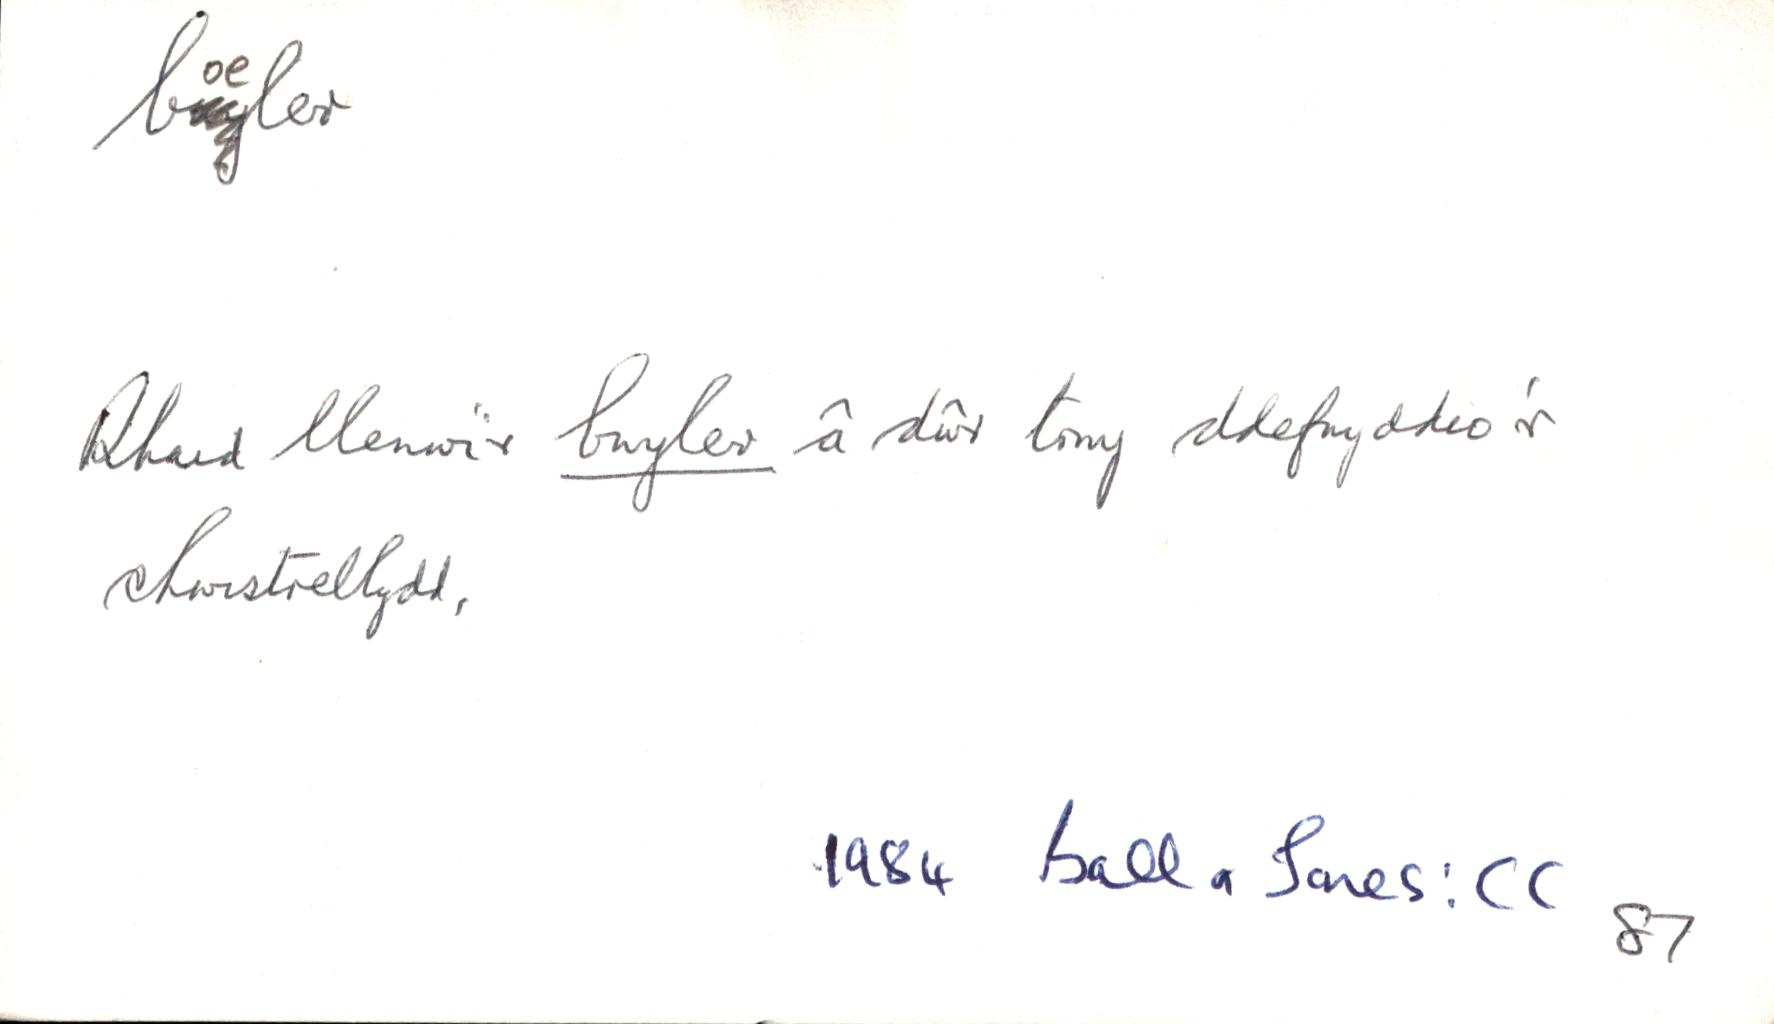 boeler
Rhaid llenwi'r bwyler â dŵr trwy ddefnyddio'r
chwistrellydd.
1984 Ball a Jones: CC
87